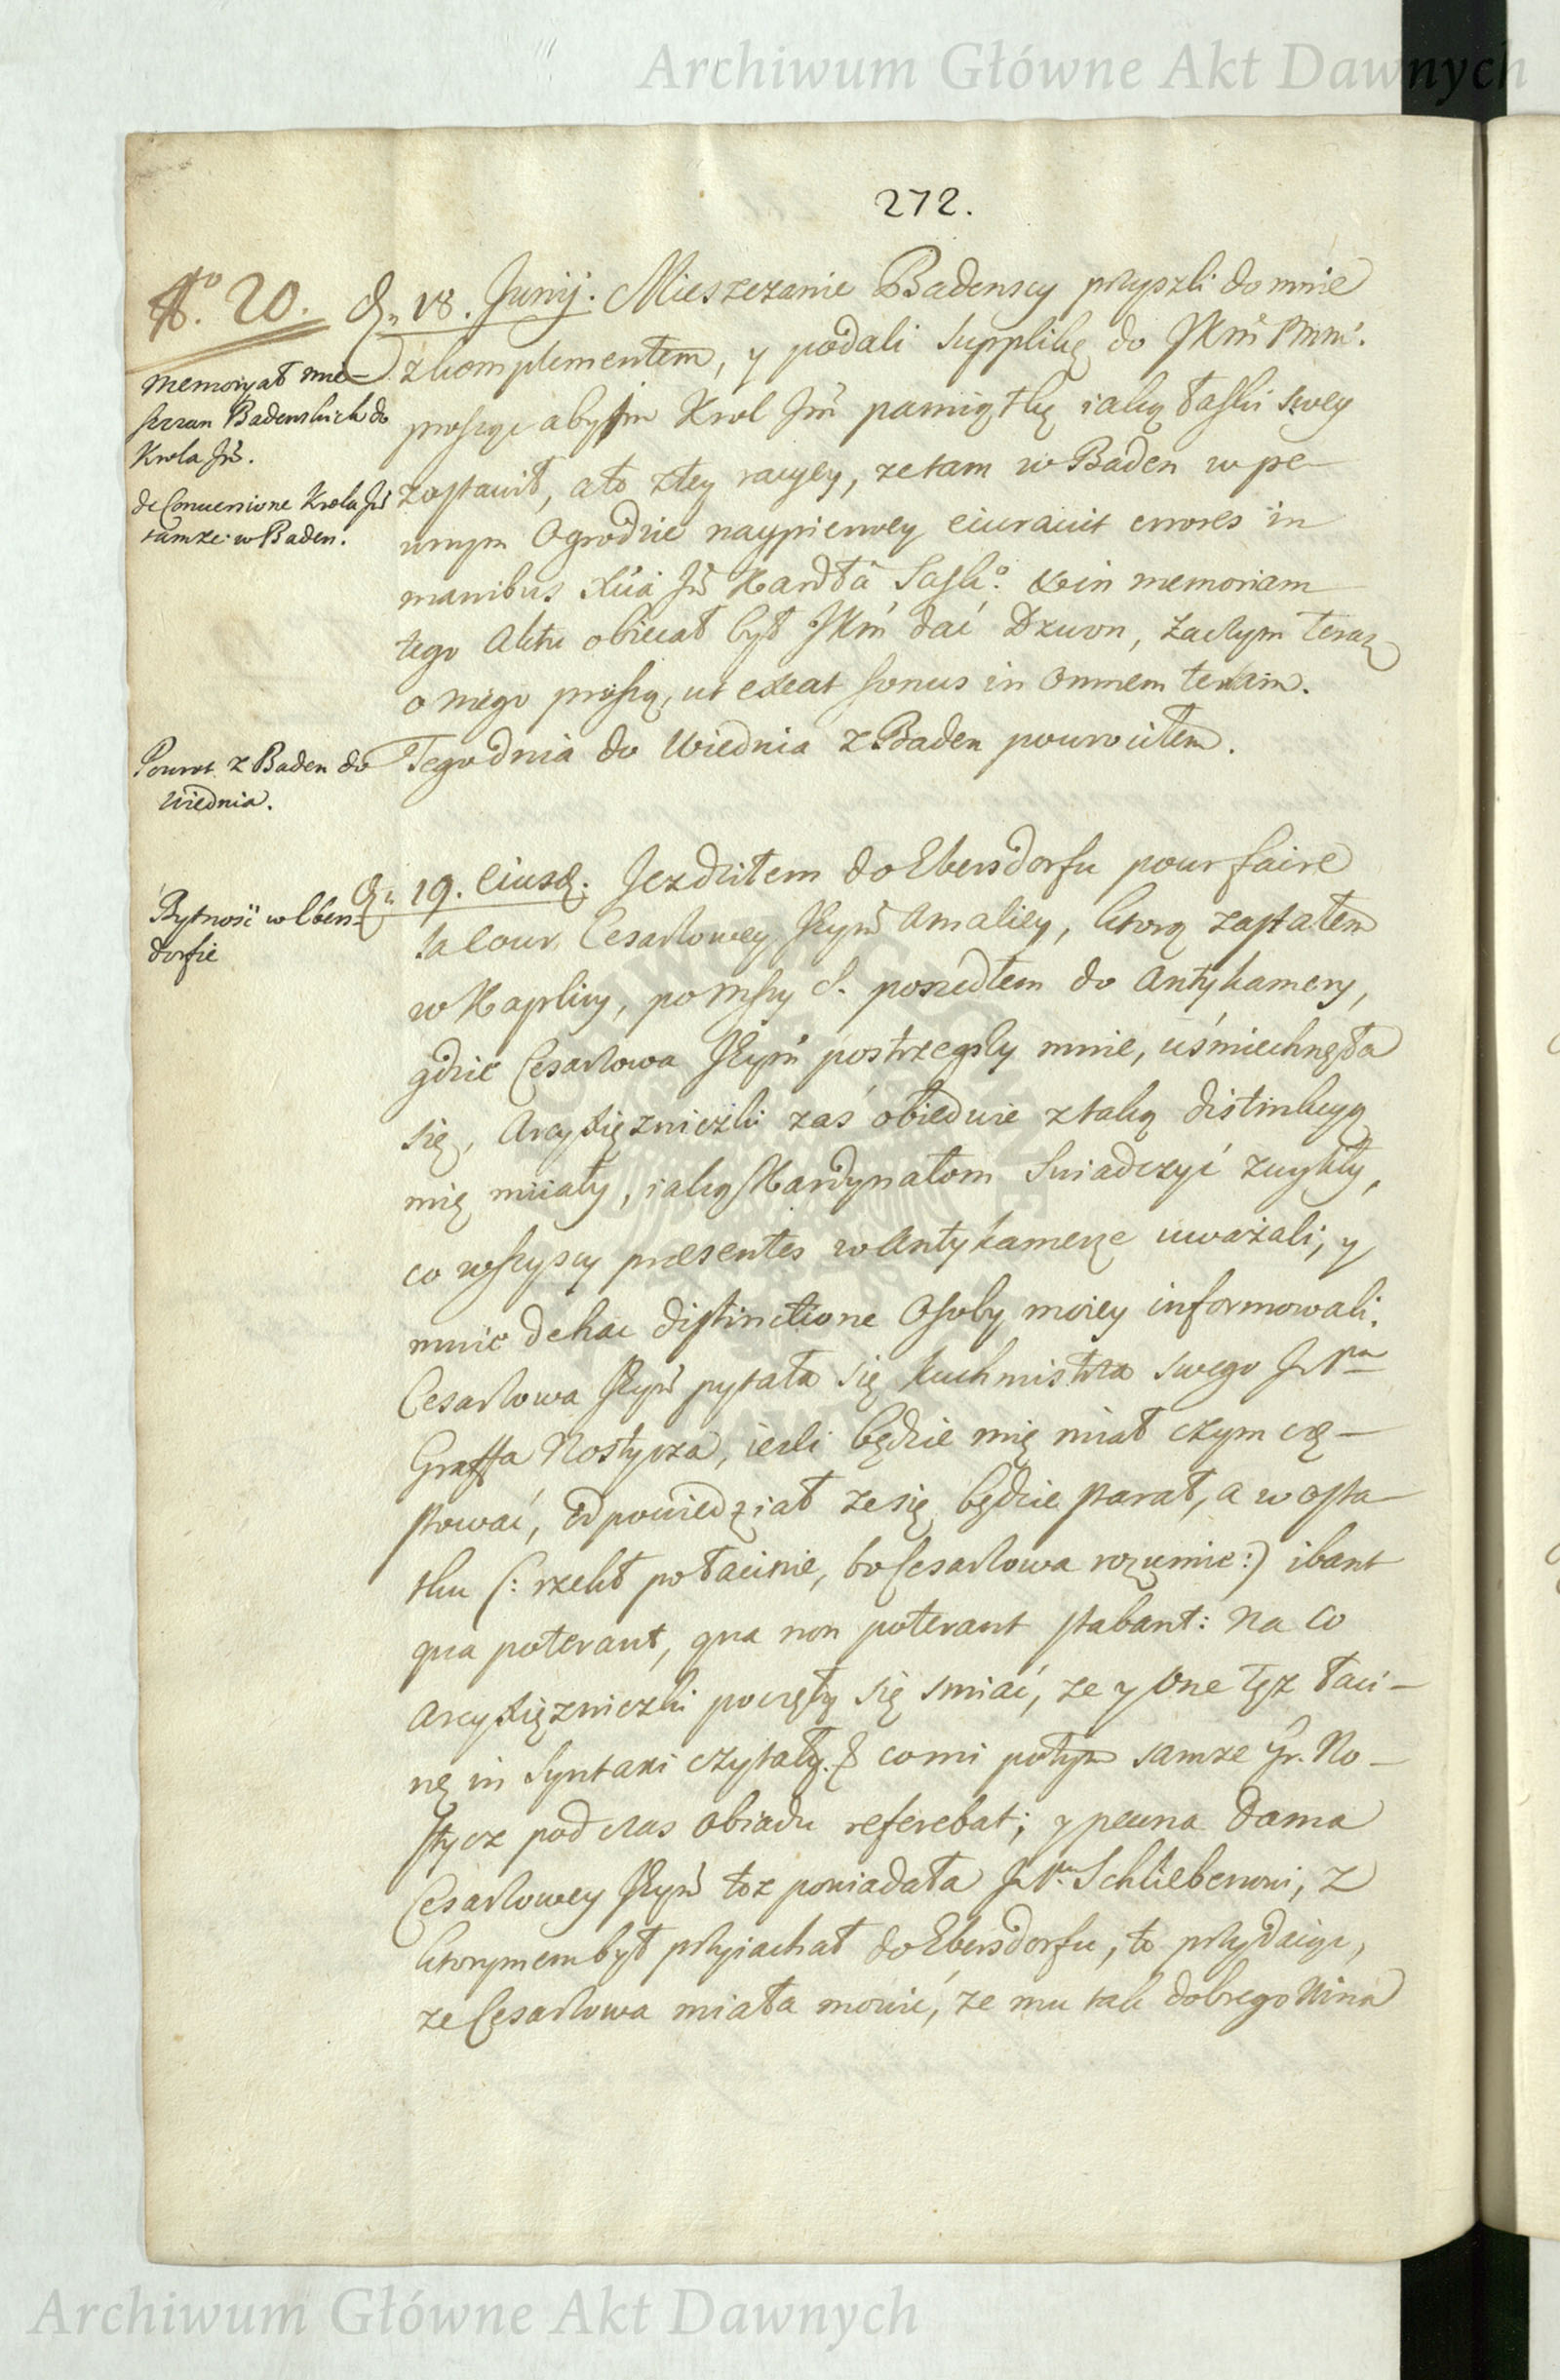 Archiwum Główne Akt Dawnych
272.
No. 20.
Memoryał mie-
szczan Badenskich do
Krola Jmć.
de Conversione Krola Jmć
tamże w Baden.
D. 18. Junij. Mieszczanie Badenscy przyszli do mnie
z komplementem, y podali Supplikę do JKmć Pmm.
prosząc aby im Krol Jmć pamiątkę iaką łaski swey
zostawił, a to z tey racyey, że tam w Baden w pe-
wnym Ogrodzie naypierwey eiuravit errores in
manibus Xcia Jmć Kardła Sasko. & in memoriam
tego Aktu obiecał był JKmć dać Dzwon, zaczym teraz
o niego proszą, ut exeat sonus in omnem terram.
Powrot z Baden do
Wiednia.
Tego dnia do Wiednia z Baden powrociłem.
Bytność w Ebers-
dorfie
D. 19. eiusd. Jezdziłem do Ebersdorfu pour faire
la cour Cesarzowey Jeymć Amaliey, ktorą zastałem
w Kaplicy, po Mszy S. poszedłem do Antykamery,
gdzie Cesarzowa Jeymć postrzegszy mnie, uśmiechnęła
się, Arcyxiężniczki zaś obiedwie z taką distinkcyą
mię miiały, iaką Kardynałom Swiadczyć zwykły,
co wszyscy præsentes w Antykamerze uważali, y
mnie de hac distinctione Osoby moiey informowali.
Cesarzowa Jeymć pytała się kuchmistrza swego JPa
Graffa Nostycza, ieżli będzie mię miał czym czę-
stować, odpowiedział że się będzie starał, a w osta-
tku (: rzekł po łacinie, bo Cesarzowa rozumie :) ibant
qua poterant, qua non poterant stabant: na co
Arcyxiężniczki poczęły się smiać, że y one tęż łaci-
nę in Syntaxi czytały. & co mi potym samże Gr. No-
stycz podczas obiadu referebat; y pewna Dama
Cesarzowey Jeymć toż powiadała JP. Schliebenowi, z
ktorymem był przyiachał do Ebersdorfu, to przydaiąc,
że Cesarzowa miała mowić, że mu tak dobrego Wina
Archiwum Główne Akt Dawnych